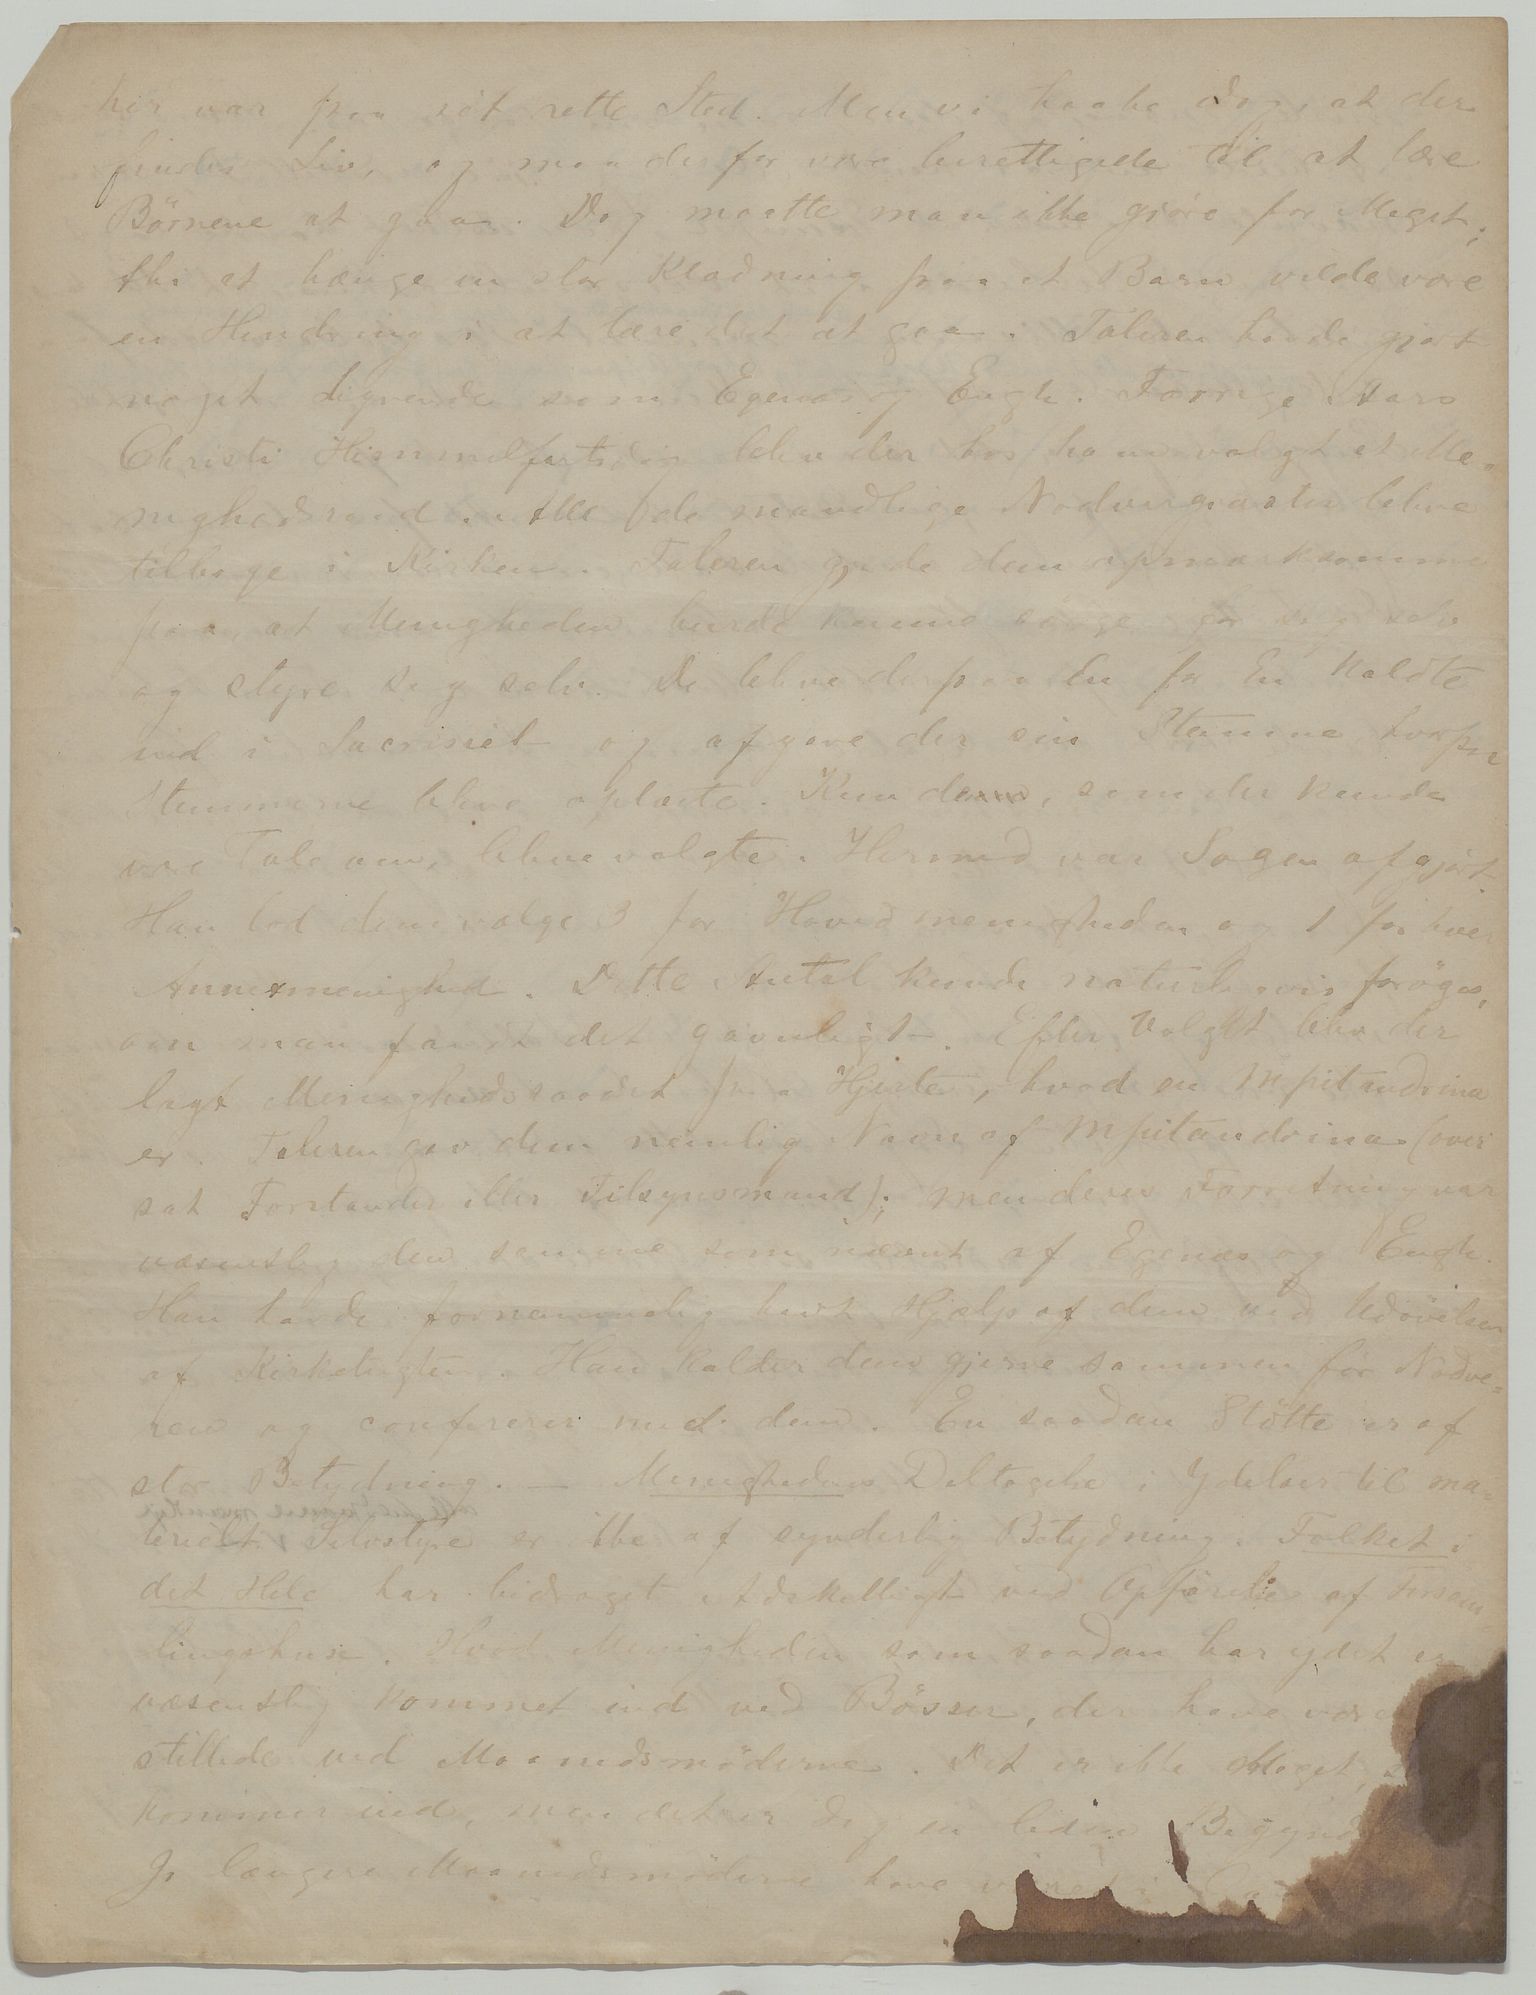 her var paa sit rette Sted. Men vi haabe dog, at der
findes Liv, og maa derfor være berettigede til at lære
Börnene at gaa. Dog maatte man ikke gjöre for Meget;
thi at hænge en stor Klædning paa et Barn vilde være
en Hindring i at lære det at gaa. Taleren havde gjort
noget lignende som Egenæs og Engh. Forrige Aars
Christi Himmelfartsdag blev der hos ham valgt et Me-
nighedsraad. Alle de mandlige Nadvergjæster bleve
tilbage i Kirken. Taleren gjorde dem opmærksomme
paa, at Menigheden burde kunne sörge for sig selv
og styre sig selv. De bleve derpaa En for En kaldte
ind i Sacristiet og afgave der sin Stemme, hvorpaa
Stemmerne bleve oplæste. Kun de, som der kunde
være Tale om, bleve valgte. Hermed var Sagen afgjort.
Han lod dem vælge 3 for Hovedmenigheden og 1 for hver
Annexmenighed. Dette Antal kunde naturligvis foröges,
om man fandt det gavnligt. Efter Valget blev der
lagt Menighedsraadet paa Hjerte, hvad en Mpitandrina
er. Taleren gav dem nemlig Navn af Mpitandrina (over
sat Forstander eller Tilsynsmand); men deres Forretning var
væsentlig den samme som nævnt af Egenæs og Engh.
Han havde fornemmelig havt Hjælp af dem ved Udövelsen
af Kirketugten. Han kalder dem gjerne sammen för Nadve-
ren og confererer med dem. En saadan Stötte er af
stor Betydning. — Menighedens Deltagelse i Ydelser til ma-
terielt Selvstyre er ikke af synderlig Betydning. Folket i
det Hele har bidraget Adskilligt ved Opförelse af Forsam-
lingshuse. Hvad Menigheden som saadan har ydet er
væsentlig kommet ind ved Bösser, der have været
stillede ved Maanedsmöderne. Det er ikke Meget,
kommer ind, men det er dog en liden
Jo længere Maanedsmöderne have